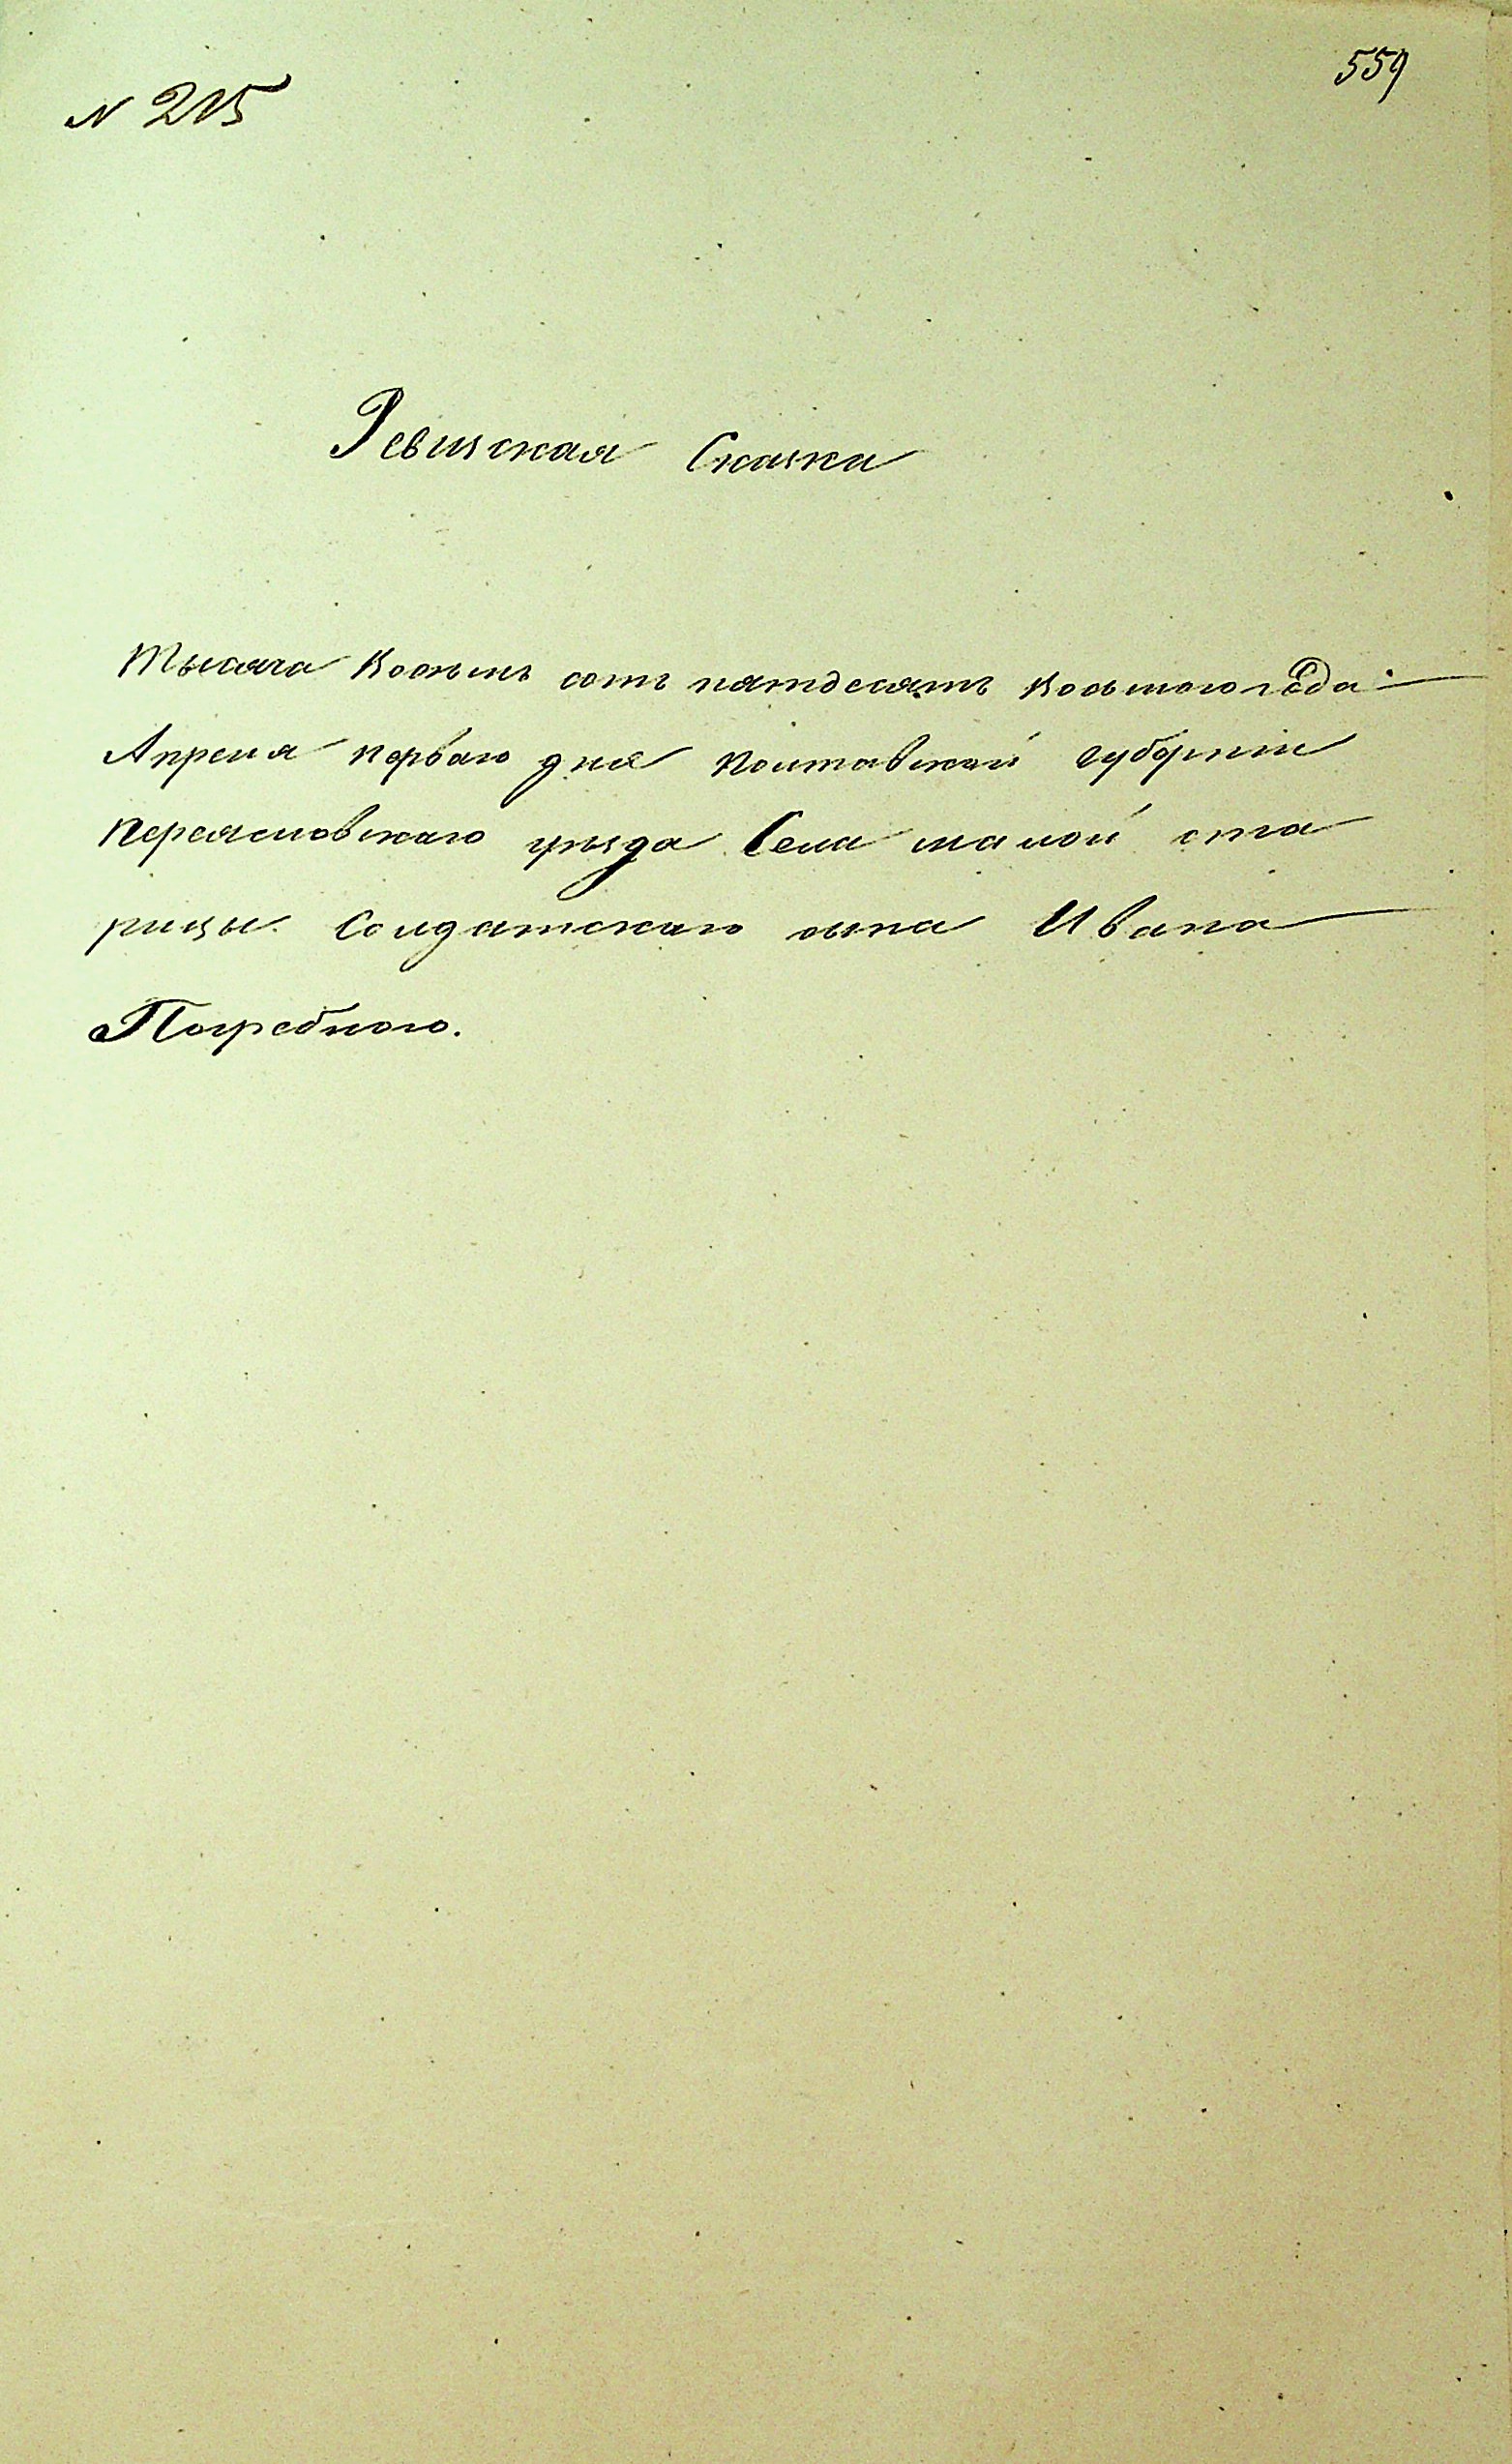 559
N 215
Ревизская Сказка
Тысяча восемь сотъ пятдесятъ восьмого года
Апреля первого дня Полтавской губернiи
Переяславскаго уезда Села малой ста
рицы Солдатскаго сына Ивана
Погребного.